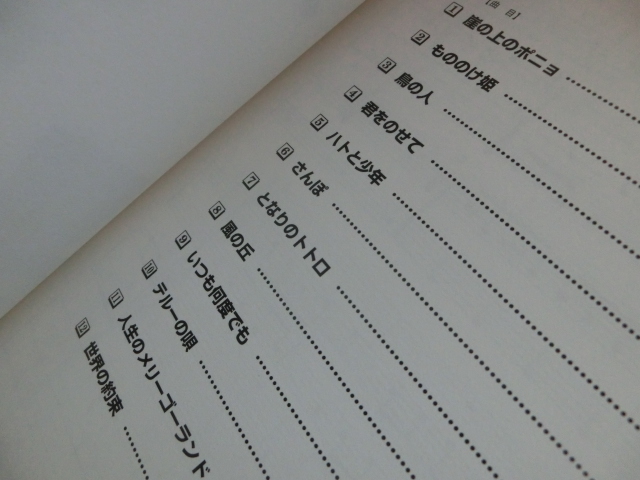 【曲目】
1 崖の上のポニョ
2 もののけ姫
3 鳥の人
4 君をのせて
5 ハトと少年
6 さんぽ
7 となりのトトロ
8 風の丘
9 いつも何度でも
10 テルーの唄
11 人生のメリーゴーランド
12 世界の約束